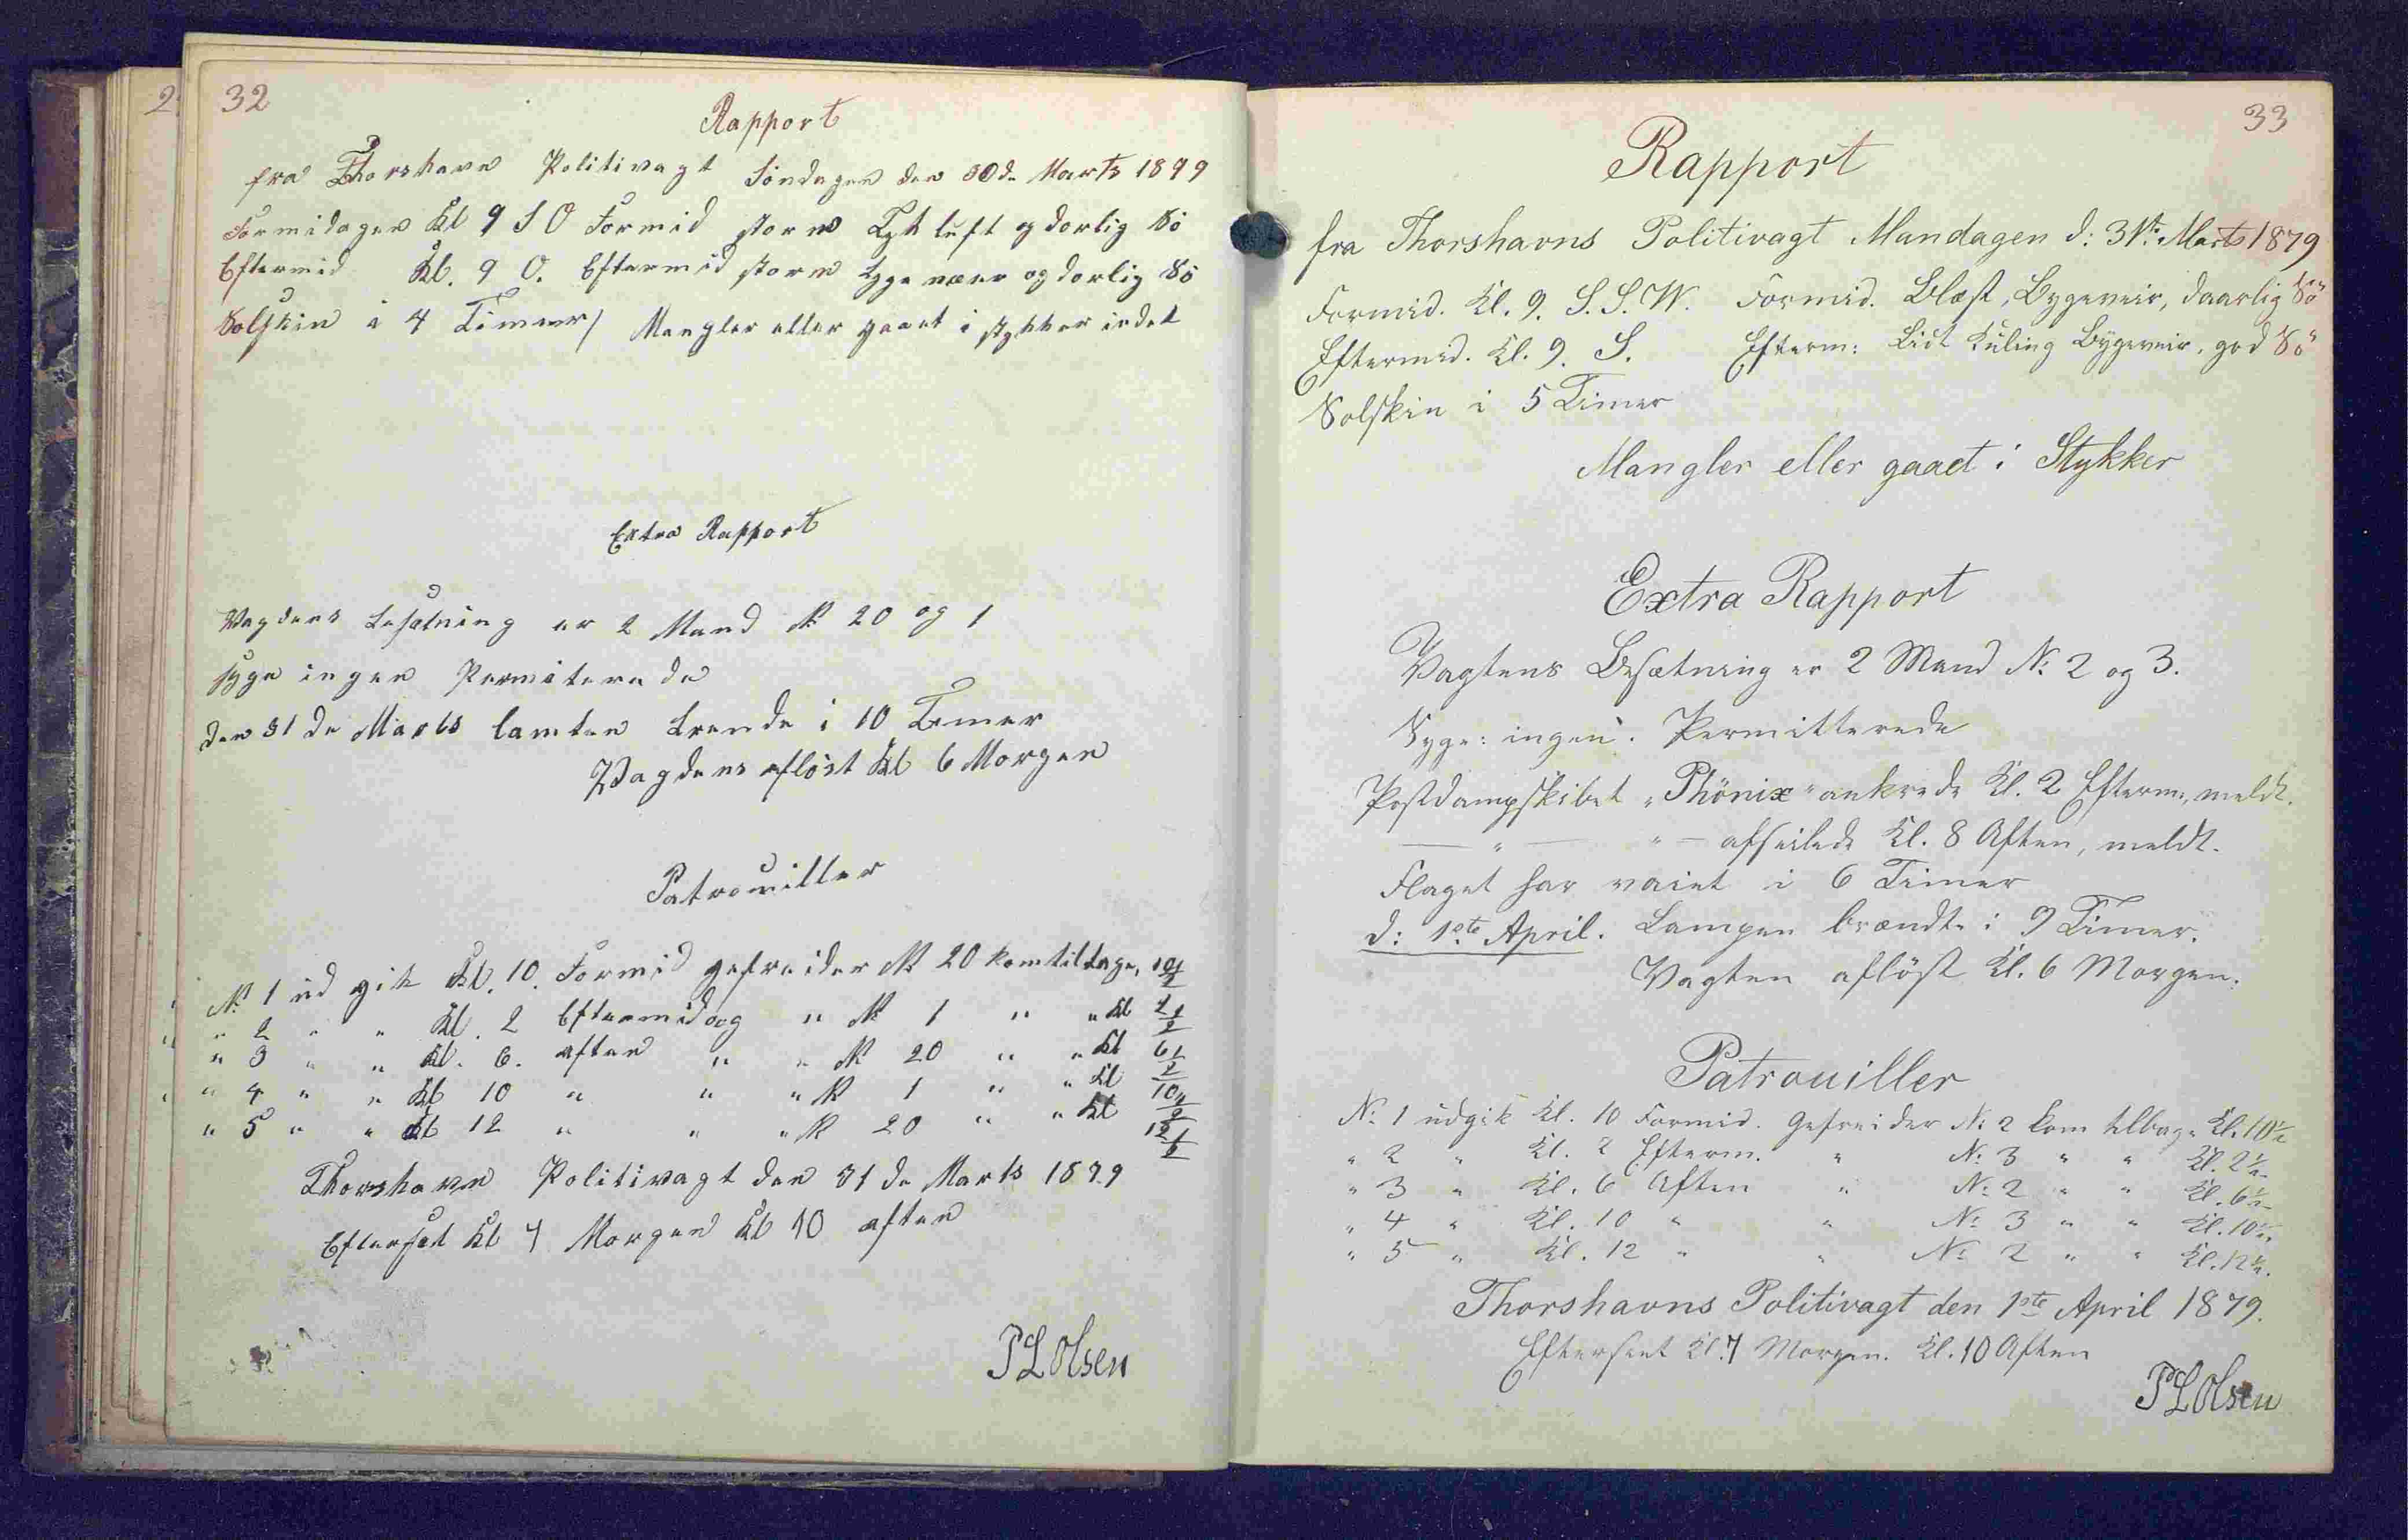 32
Rapport
fra Thorshavn Politivagt Söndagen den 30de Marts 1879
Formidagen Kl 9 S O Formid storm Tyk luft og dorlig Sö
Eftermid Kl. 9 O. Eftermid storm byge væer og dorlig Sö
Solskin i 4 Timer / Mangler eller gaaet i stykker indet
Extra Rapport
Vagdens besætning er 2 Mand № 20 og 1
syge ingen Permiterede
den 31 de Marts lamten brende i 10 Timer
Vagdens aflöst Kl 6 Morgen
Patrouiller
№ 1 ud gik Kl. 10. Formid gefreider № 20 kom tilbage, 10½
" 2 " " Kl. 2 Eftermidag " № 1 " " Kl 2½
" 3 " " Kl. 6. aften " " № 20 " " Kl 6½
" 4 " " Kl 10 " " " № 1 " " Kl 10½
" 5 " " Kl 12 " " " № 20 " " Kl 12½
Thorshavn Politivagt den 31 de Marts 1879
Efterset Kl 7 Morgen Kl 10 aften
P L Olsen
33
Rapport
fra Thorshavns Politivagt Mandagen d: 31te Marts 1879
Formid. Kl. 9. S. S. W. Formid. Blæst, Bygeveir, daarlig Sö
Eftermid. Kl. 9. S. Efterm: Lidt Kuling Bygeveir, god Sö
Solskin i 5 Timer
Mangler eller gaaet i Stykker
Extra Rapport
Vagtens Besætning er 2 Mand № 2 og 3.
Syge: ingen. Permitterede
Postdampskibet "Phönix" ankrede Kl. 2 Efterm., meldt.
— " — " — afseilede Kl. 8 Aften, meldt.
Flaget har vaiet i 6 Timer
d: 1ste April. Lampen brændte i 9 Timer.
Vagten aflöst Kl. 6 Morgen.
Patrouiller
№ 1 udgik Kl. 10 Formid. Gefreider № 2 kom tilbage Kl. 10½
" 2 " Kl. 2 Efterm. " № 3 " " Kl. 2½
" 3 " Kl. 6 Aften " № 2 " " Kl. 6½
" 4 " Kl. 10 " " № 3 " " Kl. 10½
" 5 " Kl. 12 " " № 2 " " Kl. 12½.
Thorshavns Politivagt den 1ste April 1879.
Efterseet Kl. 7 Morgen. Kl. 10 Aften
P L Olsen